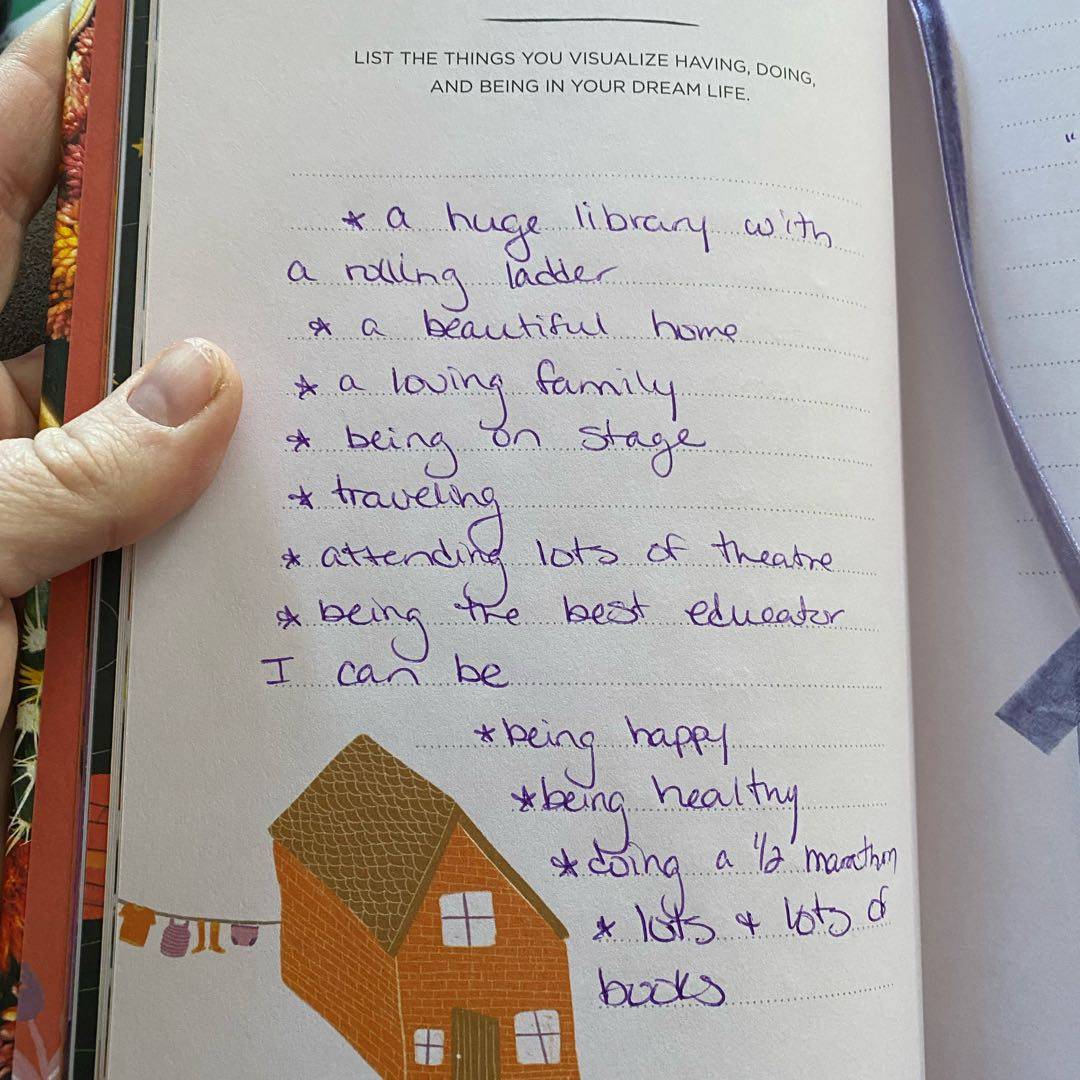 LIST THE THINGS YOU VISUALIZE HAVING, DOING,
AND BEING IN YOUR DREAM LIFE.
* a huge library with
a rolling ladder
* a beautiful home
* a loving family
* being on stage
* traveling
* attending lots of theatre
* being the best educator
I can be
* being happy
* being healthy
* doing a 1/2 marathon
* lots & lots of
books